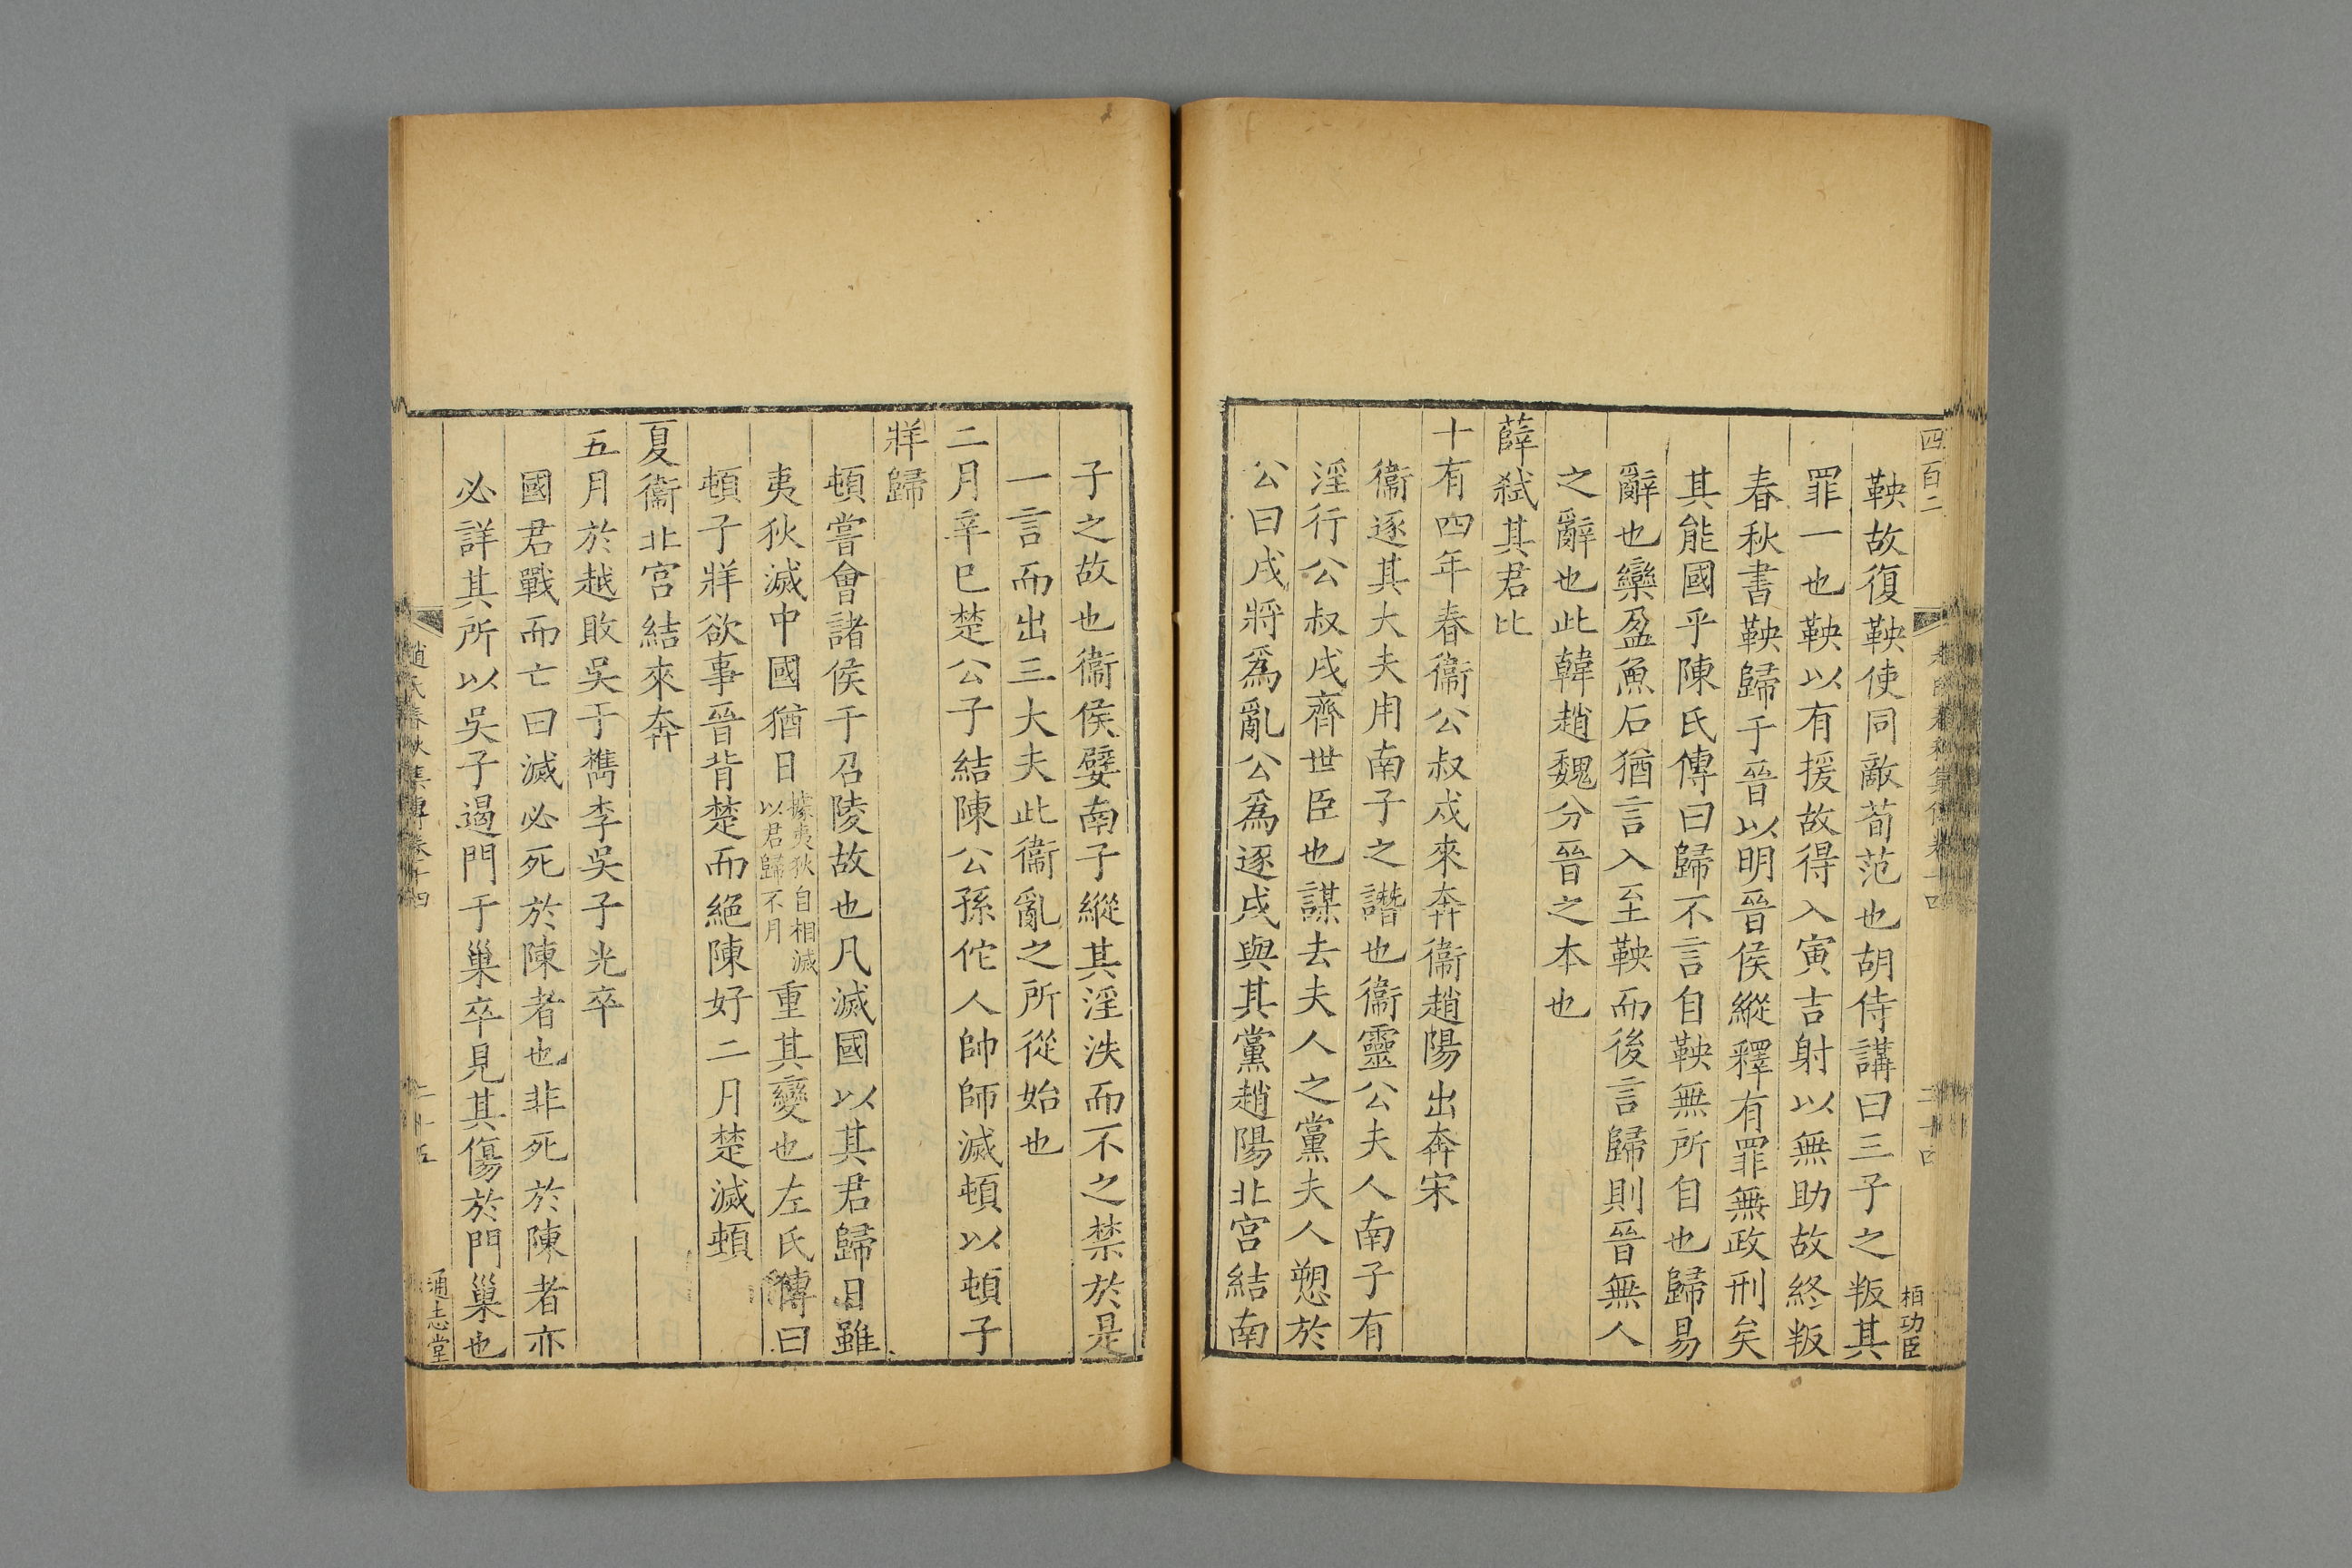 四百二
柏功臣
鞅故復鞅使同敵荀范也胡侍講曰三子之叛其
罪一也鞅以有援故得入寅吉射以無助故終叛
春秋書鞅歸于晉以明晉侯縱釋有罪無政刑矣
其能國乎陳氏傳曰歸不言自鞅無所自也歸易
辭也欒盈魚石猶言入至鞅而後言歸則晉無人
之辭也此韓趙魏分晉之本也
薛弑其君比
十有四年春衞公叔戍來奔衞趙陽出奔宋
衞逐其大夫用南子之譖也衞靈公夫人南子有
淫行公叔戍齊世臣也謀去夫人之黨夫人愬於
公曰戍將爲亂公爲逐戍與其黨趙陽北宫結南
子之故也衞侯嬖南子縱其淫泆而不之禁於是
一言而出三大夫此衞亂之所從始也
二月辛巳楚公子結陳公孫佗人帥師滅頓以頓子
牂歸
頓嘗會諸侯于召陵故也凡滅國以其君歸日雖
夷狄滅中國猶日據夷狄自相滅以君歸不月重其變也左氏傳曰
頓子牂欲事晉背楚而絕陳好二月楚滅頓
夏衞北宫結來奔
五月於越敗吳于檇李吳子光卒
國君戰而亡曰滅必死於陳者也非死於陳者亦
必詳其所以吳子遏門于巢卒見其傷於門巢也
趙氏春秋集傳卷十四
二十五
通志堂